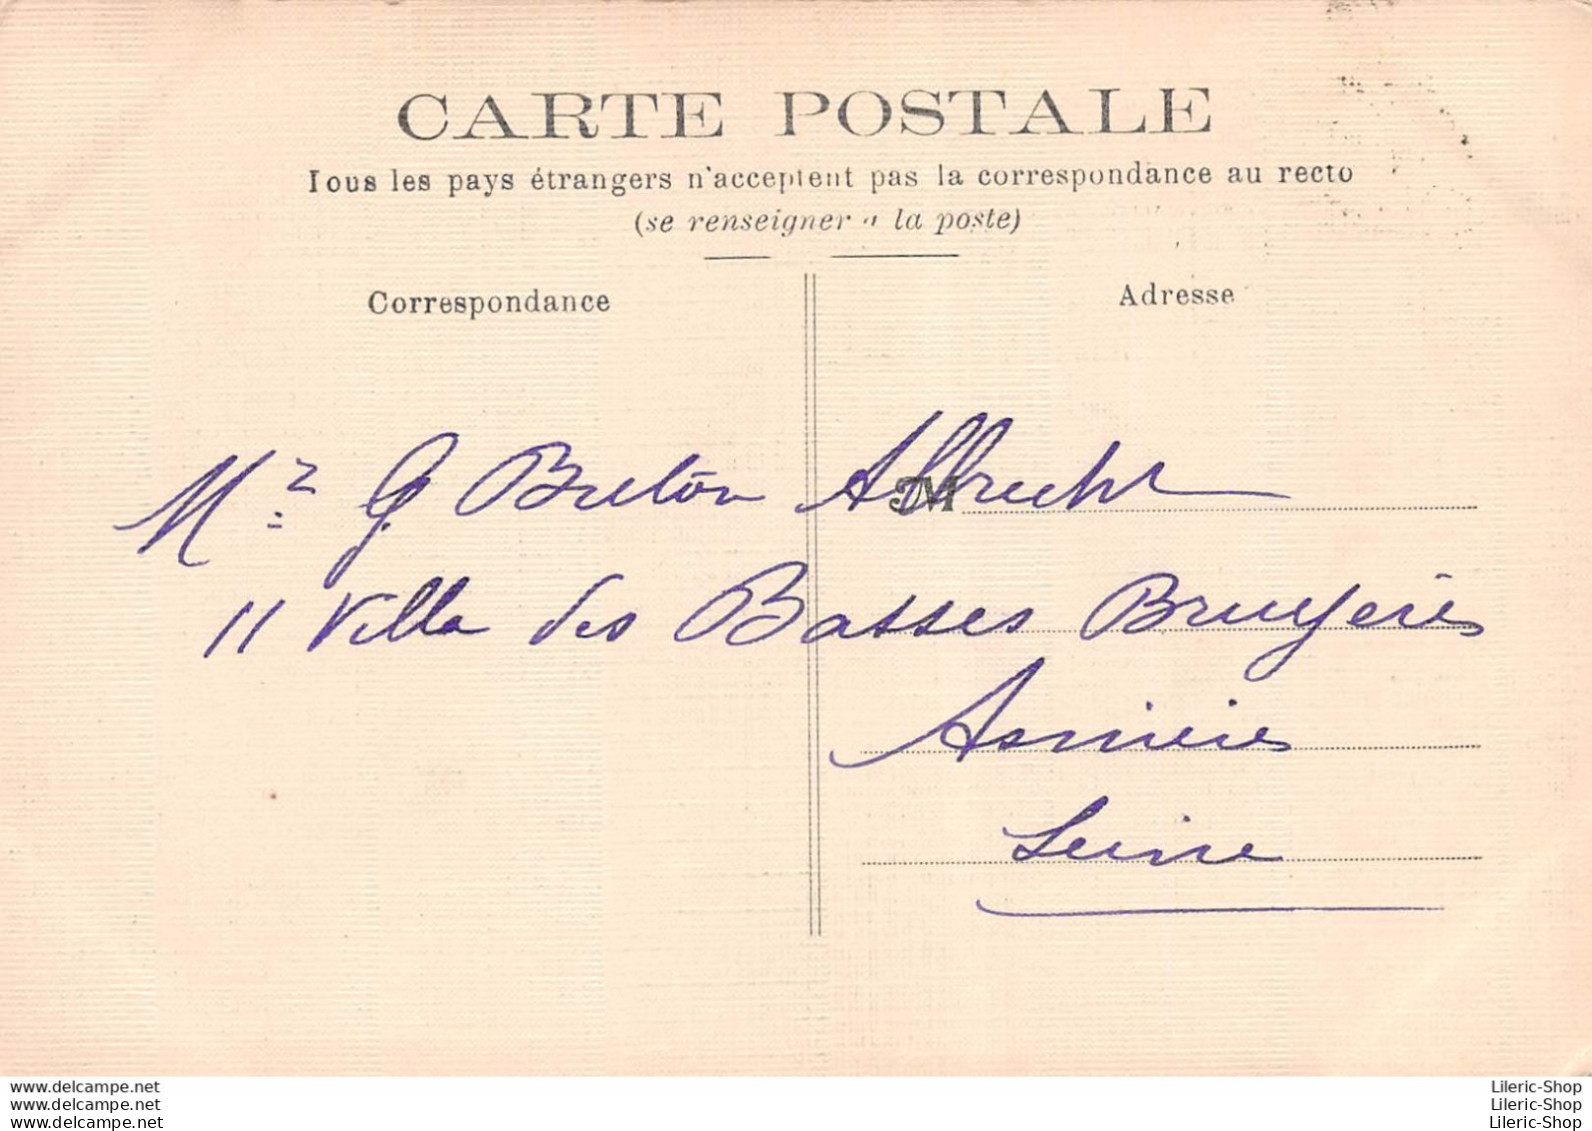 CARTE POSTALE
Tous les pays étrangers n'acceptent pas la correspondance au recto
(se renseigner à la poste)
Correspondance
Adresse
Mr G Breton Albrecht
M
11 Villa des Basses Bruyères
Asnières
Seine
www.delcampe.net
www.delcampe.net
www.delcampe.net
Lileric-Shop
Lileric-Shop
Lileric-Shop